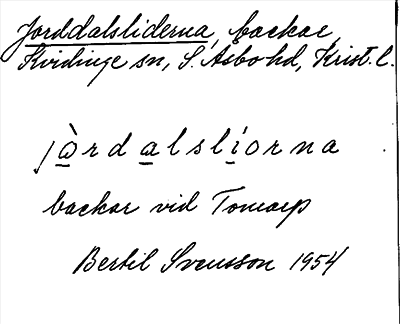 Jorddalsliderna, backar,
Kvidinge sn, S. Åsbo hd, Krist. l.
jòrdalslíorna
backar vid Tomarp
Bertil Svensson 1954